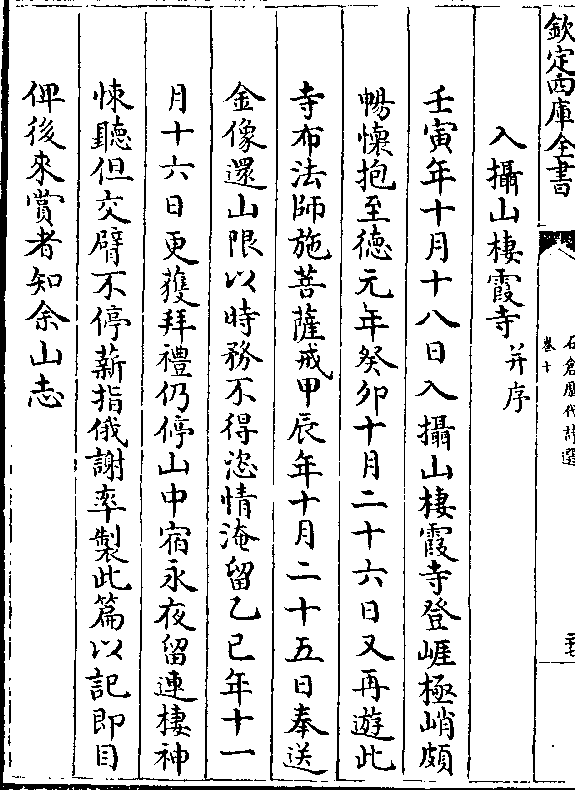 欽定四庫全書
石倉歷代詩選
卷十
入攝山棲霞寺并序
壬寅年十月十八日入攝山棲霞寺登崖極峭頗
暢懷抱至德元年癸卯十月二十六日又再遊此
寺布法師施菩薩戒甲辰年十月二十五日奉送
金像還山限以時務不得恣情淹留乙巳年十一
月十六日更獲拜禮仍停山中宿永夜留連棲神
悚聽但交臂不停薪指俄謝率製此篇以記即目
俾後來賞者知余山志